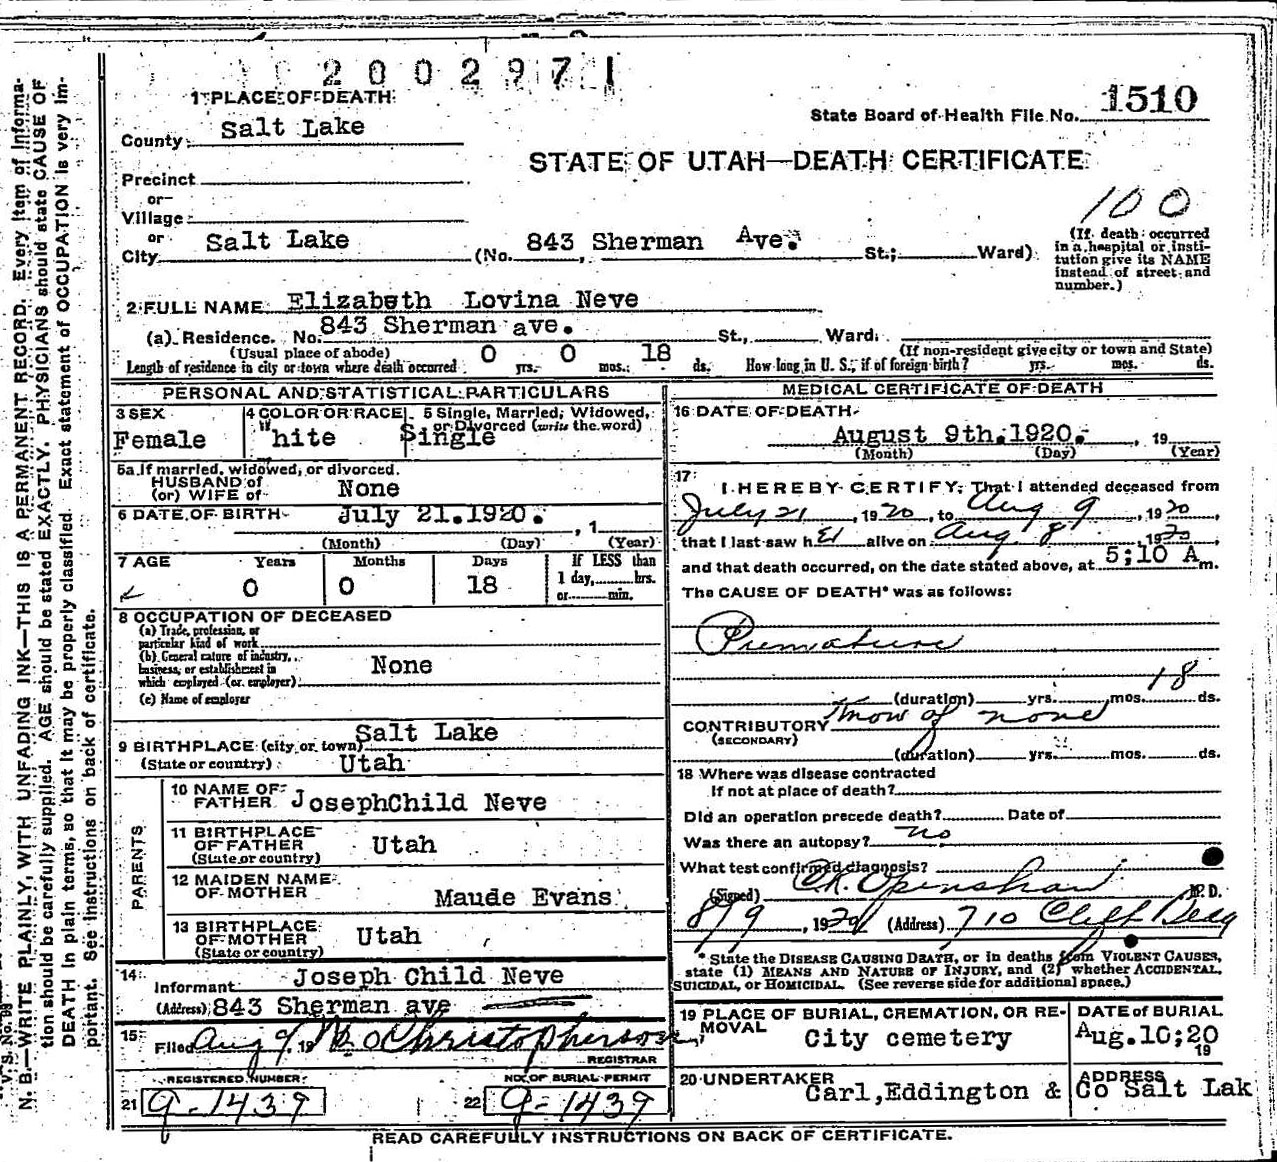 2002971
1 PLACE OF DEATH
State Board of Health File No. 1510
County Salt Lake
STATE OF UTAH—DEATH CERTIFICATE
Precinct
or
Village
100
or
City Salt Lake (No. 843 Sherman Ave. St.; Ward)
(If death occurred in a hospital or institution give its NAME instead of street and number.)
2 FULL NAME Elizabeth Lovina Neve
(a) Residence. No. 843 Sherman ave. St., Ward.
(Usual place of abode) (If non-resident give city or town and State)
Length of residence in city or town where death occurred 0 yrs. 0 mos. 18 ds. How long in U. S., if of foreign birth? yrs. mos. ds.
PERSONAL AND STATISTICAL PARTICULARS
3 SEX
Female
4 COLOR OR RACE
White
5 Single, Married, Widowed, or Divorced (write the word)
Single
5a If married, widowed, or divorced.
HUSBAND of
(or) WIFE of None
6 DATE OF BIRTH July 21.1920. , 1
(Month) (Day) (Year)
7 AGE Years Months Days If LESS than
0 0 18 1 day, hrs.
or min.
8 OCCUPATION OF DECEASED
(a) Trade, profession, or
particular kind of work
(b) General nature of industry,
business, or establishment in
which employed (or employer) None
(c) Name of employer
9 BIRTHPLACE (city or town) Salt Lake
(State or country) Utah
PARENTS
10 NAME OF FATHER JosephChild Neve
11 BIRTHPLACE OF FATHER (State or country) Utah
12 MAIDEN NAME OF MOTHER Maude Evans
13 BIRTHPLACE OF MOTHER (State or country) Utah
14
Informant Joseph Child Neve
(Address) 843 Sherman ave
15
Filed Aug 9, 19 Christopherson
REGISTRAR
REGISTERED NUMBER NO. OF BURIAL PERMIT
21 9-1439 22 9-1439
MEDICAL CERTIFICATE OF DEATH
16 DATE OF DEATH
August 9th.1920. , 19
(Month) (Day) (Year)
17
I HEREBY CERTIFY, That I attended deceased from
July 21 , 1920, to Aug 9 , 1920,
that I last saw her alive on Aug 8 , 1920
and that death occurred, on the date stated above, at 5;10 A m.
The CAUSE OF DEATH* was as follows:
Premature
(duration) yrs. mos. 18 ds.
CONTRIBUTORY Know of none
(SECONDARY)
(duration) yrs. mos. ds.
18 Where was disease contracted
If not at place of death?
Did an operation precede death? Date of
Was there an autopsy? no
What test confirmed diagnosis?
(Signed) Openshaw M. D.
8/9 , 1920 (Address) 710 Cliff Bldg
* State the DISEASE CAUSING DEATH, or in deaths from VIOLENT CAUSES,
state (1) MEANS AND NATURE OF INJURY, and (2) whether ACCIDENTAL,
SUICIDAL, or HOMICIDAL. (See reverse side for additional space.)
19 PLACE OF BURIAL, CREMATION, OR REMOVAL
City cemetery
DATE of BURIAL
Aug.10;20
19
20 UNDERTAKER
Carl,Eddington &
ADDRESS
Co Salt Lak
READ CAREFULLY INSTRUCTIONS ON BACK OF CERTIFICATE.
N. B.—WRITE PLAINLY, WITH UNFADING INK—THIS IS A PERMANENT RECORD. Every item of informa-
tion should be carefully supplied. AGE should be stated EXACTLY. PHYSICIANS should state CAUSE OF
DEATH in plain terms, so that it may be properly classified. Exact statement of OCCUPATION is very im-
portant. See instructions on back of certificate.